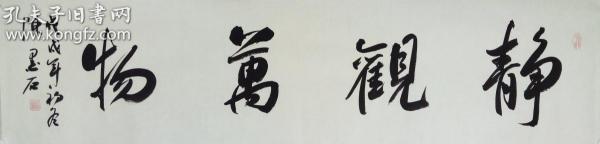 静觀萬物
戊戌年初冬
墨石
孔夫子旧书网
www.kongfz.com